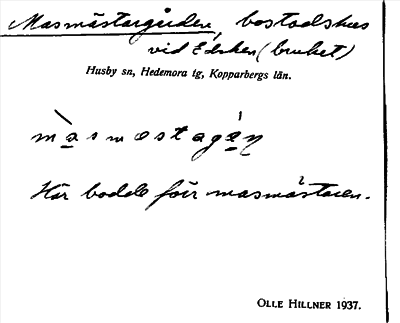 Masmästargården, bostadshus
vid Edsken (bruket)
Husby sn, Hedemora tg, Kopparbergs län.
Här bodde förr masmästaren.
OLLE HILLNER 1937.